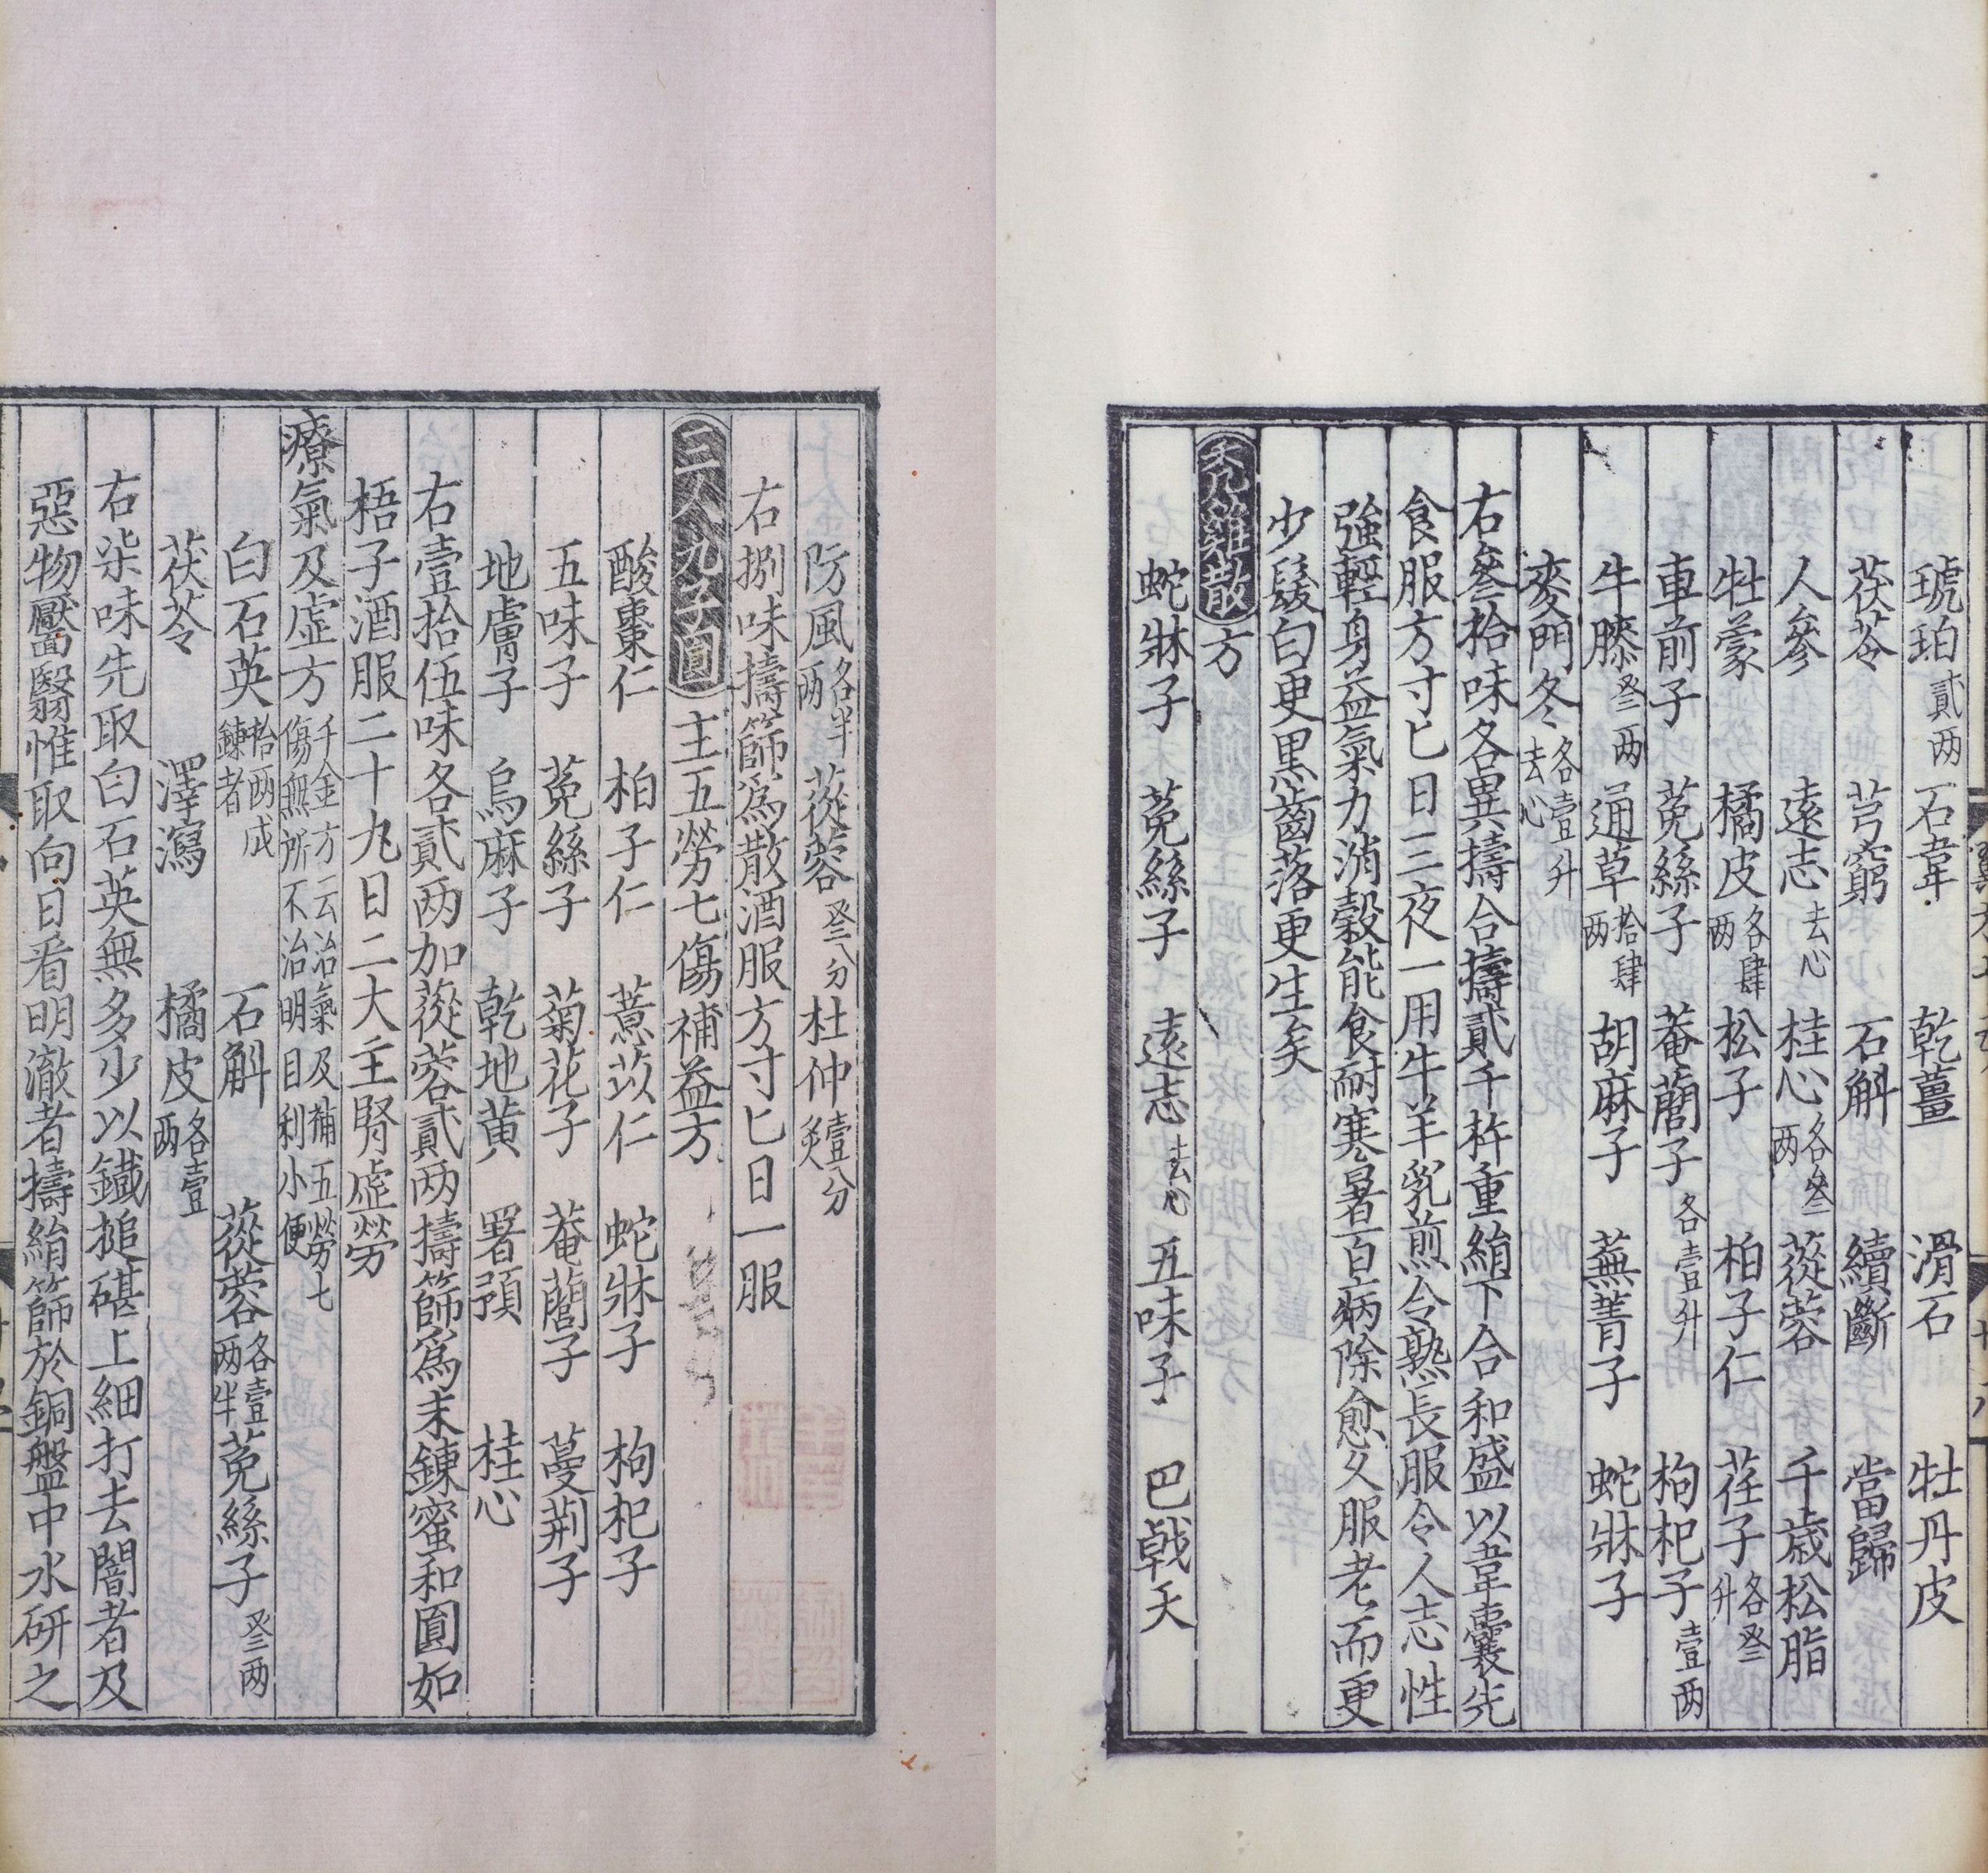 琥珀貳两 石韋 乾薑 滑石 牡丹皮
茯苓 芎窮 石斛 續斷 當歸
人參 遠志去心 桂心各叁两 蓯蓉 千歳松脂
牡蒙 橘皮各肆两 松子 柏子仁 荏子各叁升
車前子 菟絲子 菴䕡子各壹升 枸杞子壹两
牛膝叁两 通草拾肆两 胡麻子 蕪菁子 蛇牀子
麥門冬各壹升去心
右叁拾味各異擣合擣貳千杵重絹下合和盛以韋囊先
食服方寸匕日三夜一用牛羊乳煎令熟長服令人志性
強輕身益氣力消穀能食耐寒暑百病除愈久服老而更
少髮白更黒齒落更生矣
秃雞散方
蛇牀子 菟絲子 遠志去心 五味子 巴戟天
防風各半两 蓯蓉叁分 杜仲壹分炙
右捌味擣篩爲散酒服方寸匕日一服
三人九子圓主五勞七傷補益方
酸棗仁 柏子仁 薏苡仁 蛇牀子 枸杞子
五味子 菟絲子 菊花子 菴䕡子 蔓荆子
地膚子 烏麻子 乾地黄 署預 桂心
右壹拾伍味各貳两加蓯蓉貳两擣篩爲末錬蜜和圓如
梧子酒服二十九日二大主腎虛勞
療氣及虛方千金方云治氣及補五勞七傷無所不治明目利小便
白石英拾两成錬者 石斛 蓯蓉各壹两半 菟絲子叁两
茯苓 澤瀉 橘皮各壹两
右柒味先取白石英無多少以鐵搥碪上細打去闇者及
惡物黶翳惟取向日看明澈者擣絹篩於銅盤中水研之